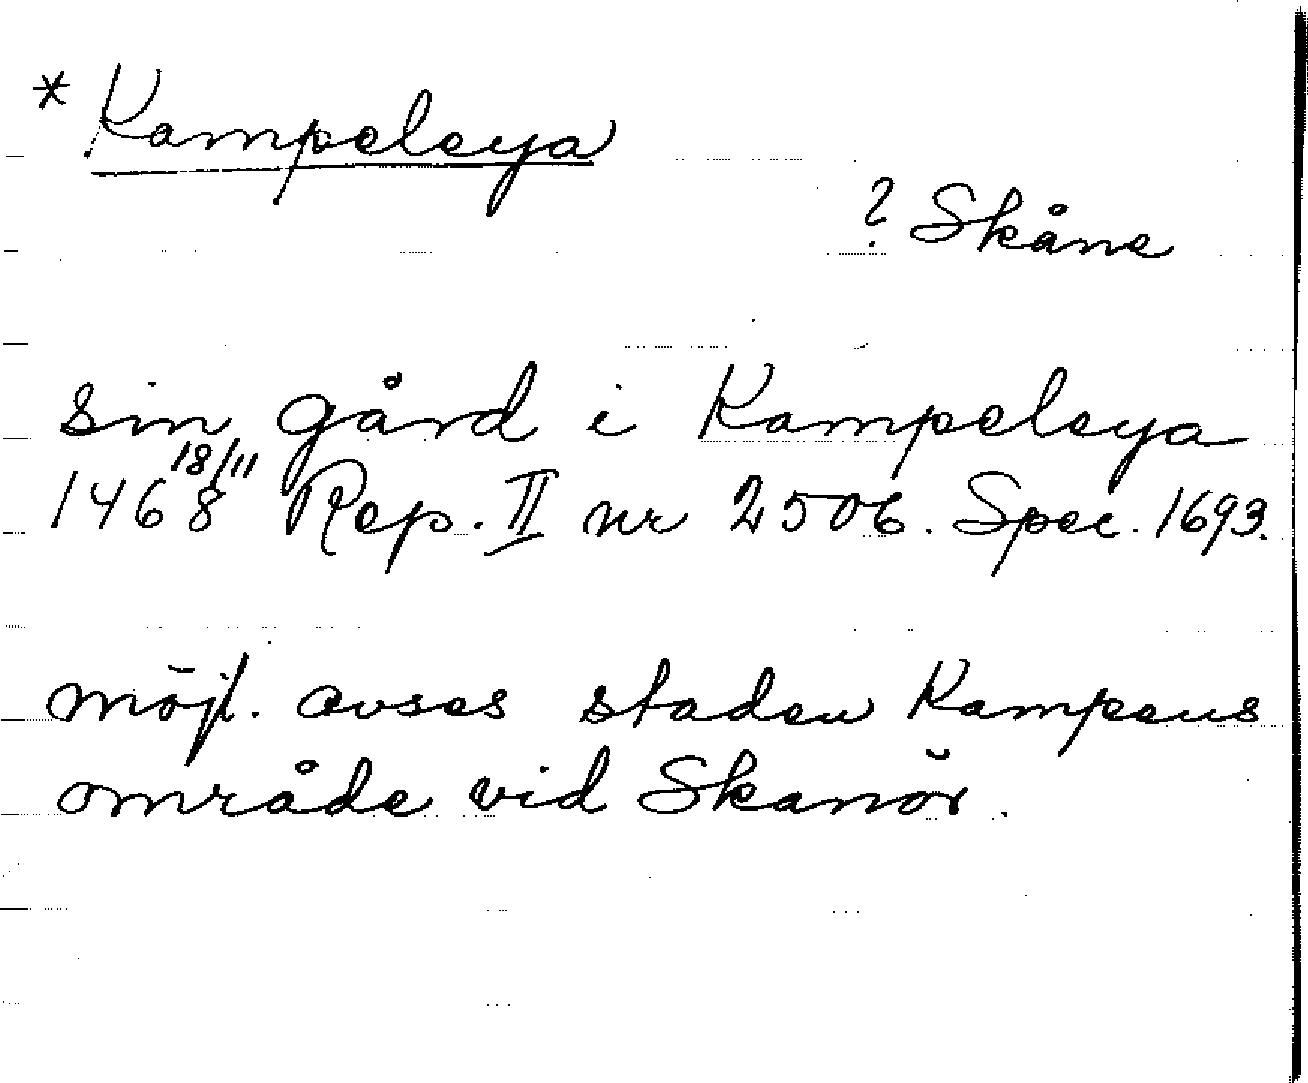 * Kampeleya
? Skåne
sin gård i Kampeleya
1468 18/11 Rep. II nr 2506. Spec. 1693.
möjl. avses staden Kampens
område vid Skanör.